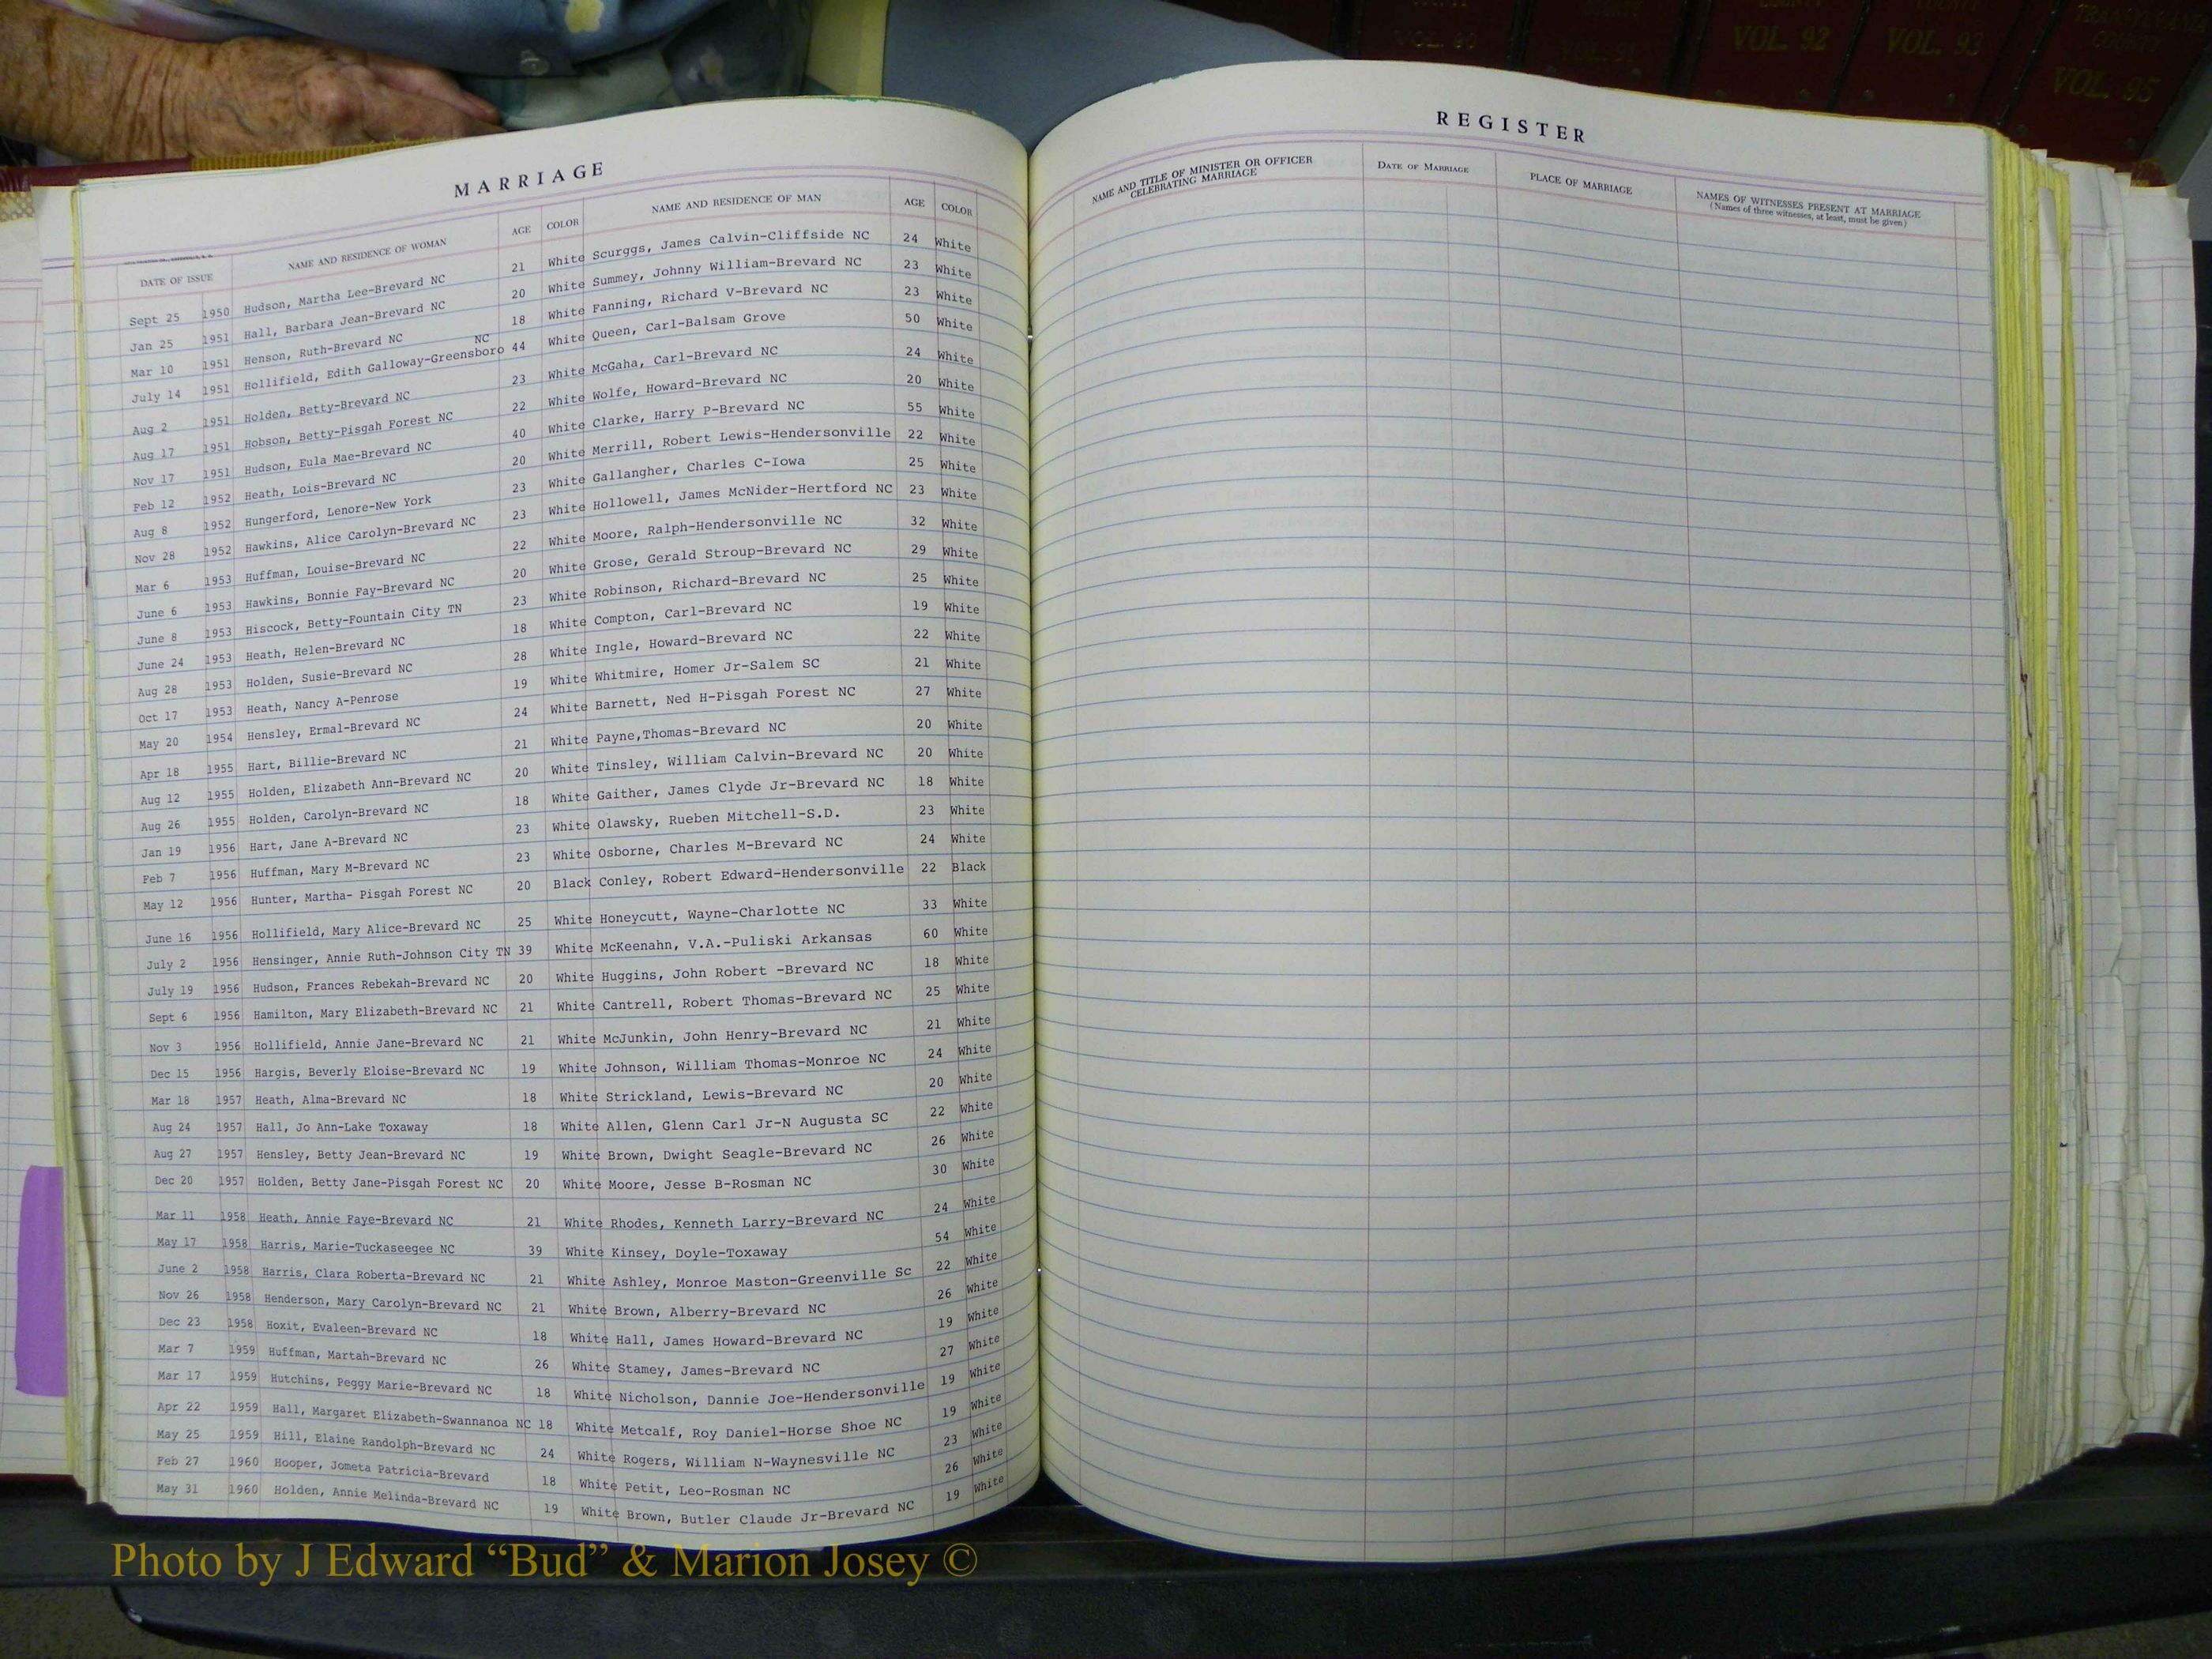 VOL. 90
VOL. 91
COUNTY
VOL. 92
COUNTY
VOL. 93
TRANSYLVANIA
COUNTY
VOL. 95
MARRIAGE
DATE OF ISSUE NAME AND RESIDENCE OF WOMAN AGE COLOR NAME AND RESIDENCE OF MAN AGE COLOR
Sept 25 1950 Hudson, Martha Lee-Brevard NC 21 White Scurggs, James Calvin-Cliffside NC 24 White
Jan 25 1951 Hall, Barbara Jean-Brevard NC 20 White Summey, Johnny William-Brevard NC 23 White
Mar 10 1951 Henson, Ruth-Brevard NC 18 White Fanning, Richard V-Brevard NC 23 White
NC
July 14 1951 Hollifield, Edith Galloway-Greensboro 44 White Queen, Carl-Balsam Grove 50 White
Aug 2 1951 Holden, Betty-Brevard NC 23 White McGaha, Carl-Brevard NC 24 White
Aug 17 1951 Hobson, Betty-Pisgah Forest NC 22 White Wolfe, Howard-Brevard NC 20 White
Nov 17 1951 Hudson, Eula Mae-Brevard NC 40 White Clarke, Harry P-Brevard NC 55 White
Feb 12 1952 Heath, Lois-Brevard NC 20 White Merrill, Robert Lewis-Hendersonville 22 White
Aug 8 1952 Hungerford, Lenore-New York 23 White Gallangher, Charles C-Iowa 25 White
Nov 28 1952 Hawkins, Alice Carolyn-Brevard NC 23 White Hollowell, James McNider-Hertford NC 23 White
Mar 6 1953 Huffman, Louise-Brevard NC 22 White Moore, Ralph-Hendersonville NC 32 White
June 6 1953 Hawkins, Bonnie Fay-Brevard NC 20 White Grose, Gerald Stroup-Brevard NC 29 White
June 8 1953 Hiscock, Betty-Fountain City TN 23 White Robinson, Richard-Brevard NC 25 White
June 24 1953 Heath, Helen-Brevard NC 18 White Compton, Carl-Brevard NC 19 White
Aug 28 1953 Holden, Susie-Brevard NC 28 White Ingle, Howard-Brevard NC 22 White
Oct 17 1953 Heath, Nancy A-Penrose 19 White Whitmire, Homer Jr-Salem SC 21 White
May 20 1954 Hensley, Ermal-Brevard NC 24 White Barnett, Ned H-Pisgah Forest NC 27 White
Apr 18 1955 Hart, Billie-Brevard NC 21 White Payne,Thomas-Brevard NC 20 White
Aug 12 1955 Holden, Elizabeth Ann-Brevard NC 20 White Tinsley, William Calvin-Brevard NC 20 White
Aug 26 1955 Holden, Carolyn-Brevard NC 18 White Gaither, James Clyde Jr-Brevard NC 18 White
Jan 19 1956 Hart, Jane A-Brevard NC 23 White Olawsky, Rueben Mitchell-S.D. 23 White
Feb 7 1956 Huffman, Mary M-Brevard NC 23 White Osborne, Charles M-Brevard NC 24 White
May 12 1956 Hunter, Martha- Pisgah Forest NC 20 Black Conley, Robert Edward-Hendersonville 22 Black
June 16 1956 Hollifield, Mary Alice-Brevard NC 25 White Honeycutt, Wayne-Charlotte NC 33 White
July 2 1956 Hensinger, Annie Ruth-Johnson City TN 39 White McKeenahn, V.A.-Puliski Arkansas 60 White
July 19 1956 Hudson, Frances Rebekah-Brevard NC 20 White Huggins, John Robert -Brevard NC 18 White
Sept 6 1956 Hamilton, Mary Elizabeth-Brevard NC 21 White Cantrell, Robert Thomas-Brevard NC 25 White
Nov 3 1956 Hollifield, Annie Jane-Brevard NC 21 White McJunkin, John Henry-Brevard NC 21 White
Dec 15 1956 Hargis, Beverly Eloise-Brevard NC 19 White Johnson, William Thomas-Monroe NC 24 White
Mar 18 1957 Heath, Alma-Brevard NC 18 White Strickland, Lewis-Brevard NC 20 White
Aug 24 1957 Hall, Jo Ann-Lake Toxaway 18 White Allen, Glenn Carl Jr-N Augusta SC 22 White
Aug 27 1957 Hensley, Betty Jean-Brevard NC 19 White Brown, Dwight Seagle-Brevard NC 26 White
Dec 20 1957 Holden, Betty Jane-Pisgah Forest NC 20 White Moore, Jesse B-Rosman NC 30 White
Mar 11 1958 Heath, Annie Faye-Brevard NC 21 White Rhodes, Kenneth Larry-Brevard NC 24 White
May 17 1958 Harris, Marie-Tuckaseegee NC 39 White Kinsey, Doyle-Toxaway 54 White
June 2 1958 Harris, Clara Roberta-Brevard NC 21 White Ashley, Monroe Maston-Greenville Sc 22 White
Nov 26 1958 Henderson, Mary Carolyn-Brevard NC 21 White Brown, Alberry-Brevard NC 26 White
Dec 23 1958 Hoxit, Evaleen-Brevard NC 18 White Hall, James Howard-Brevard NC 19 White
Mar 7 1959 Huffman, Martah-Brevard NC 26 White Stamey, James-Brevard NC 27 White
Mar 17 1959 Hutchins, Peggy Marie-Brevard NC 18 White Nicholson, Dannie Joe-Hendersonville 19 White
Apr 22 1959 Hall, Margaret Elizabeth-Swannanoa NC 18 White Metcalf, Roy Daniel-Horse Shoe NC 19 White
May 25 1959 Hill, Elaine Randolph-Brevard NC 24 White Rogers, William N-Waynesville NC 23 White
Feb 27 1960 Hooper, Jometa Patricia-Brevard 18 White Petit, Leo-Rosman NC 26 White
May 31 1960 Holden, Annie Melinda-Brevard NC 19 White Brown, Butler Claude Jr-Brevard NC 19 White
REGISTER
NAME AND TITLE OF MINISTER OR OFFICER
CELEBRATING MARRIAGE
DATE OF MARRIAGE
PLACE OF MARRIAGE
NAMES OF WITNESSES PRESENT AT MARRIAGE
(Names of three witnesses, at least, must be given)
Photo by J Edward “Bud” & Marion Josey ©